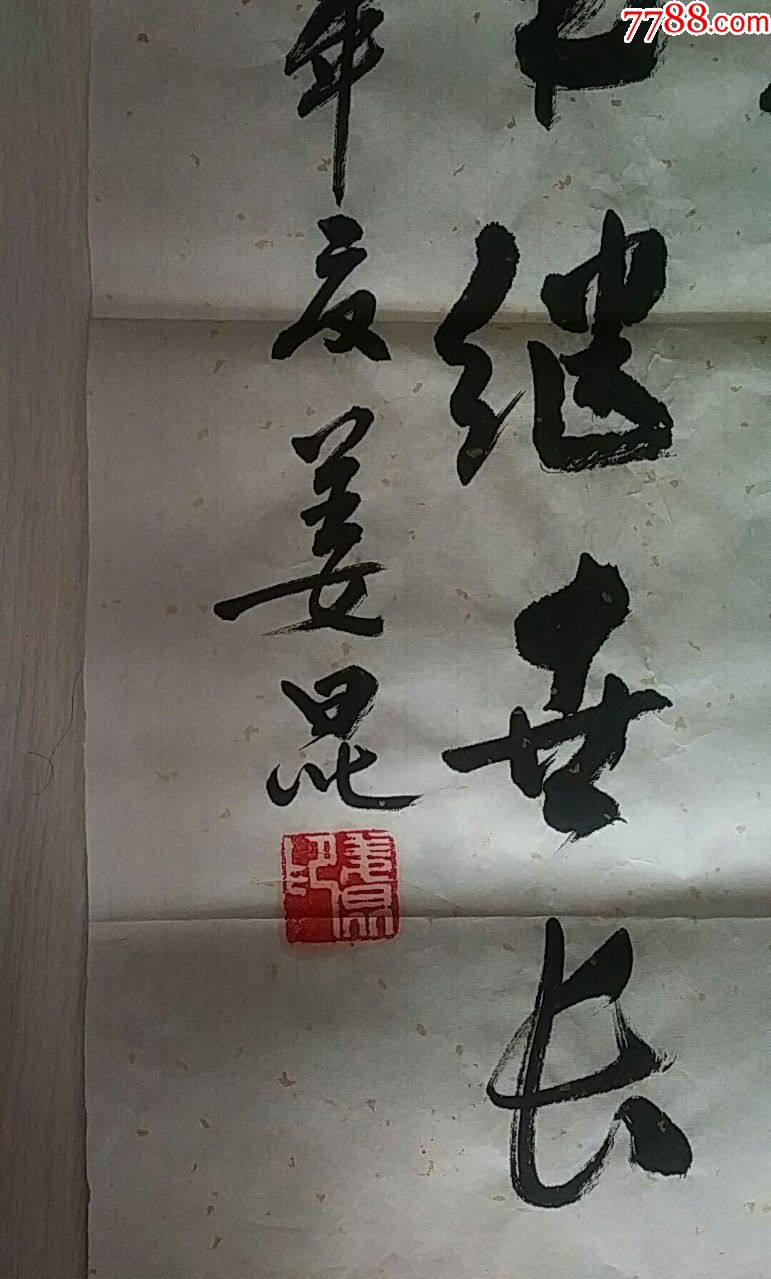 7788.com
继世长
年夏姜昆
姜昆印